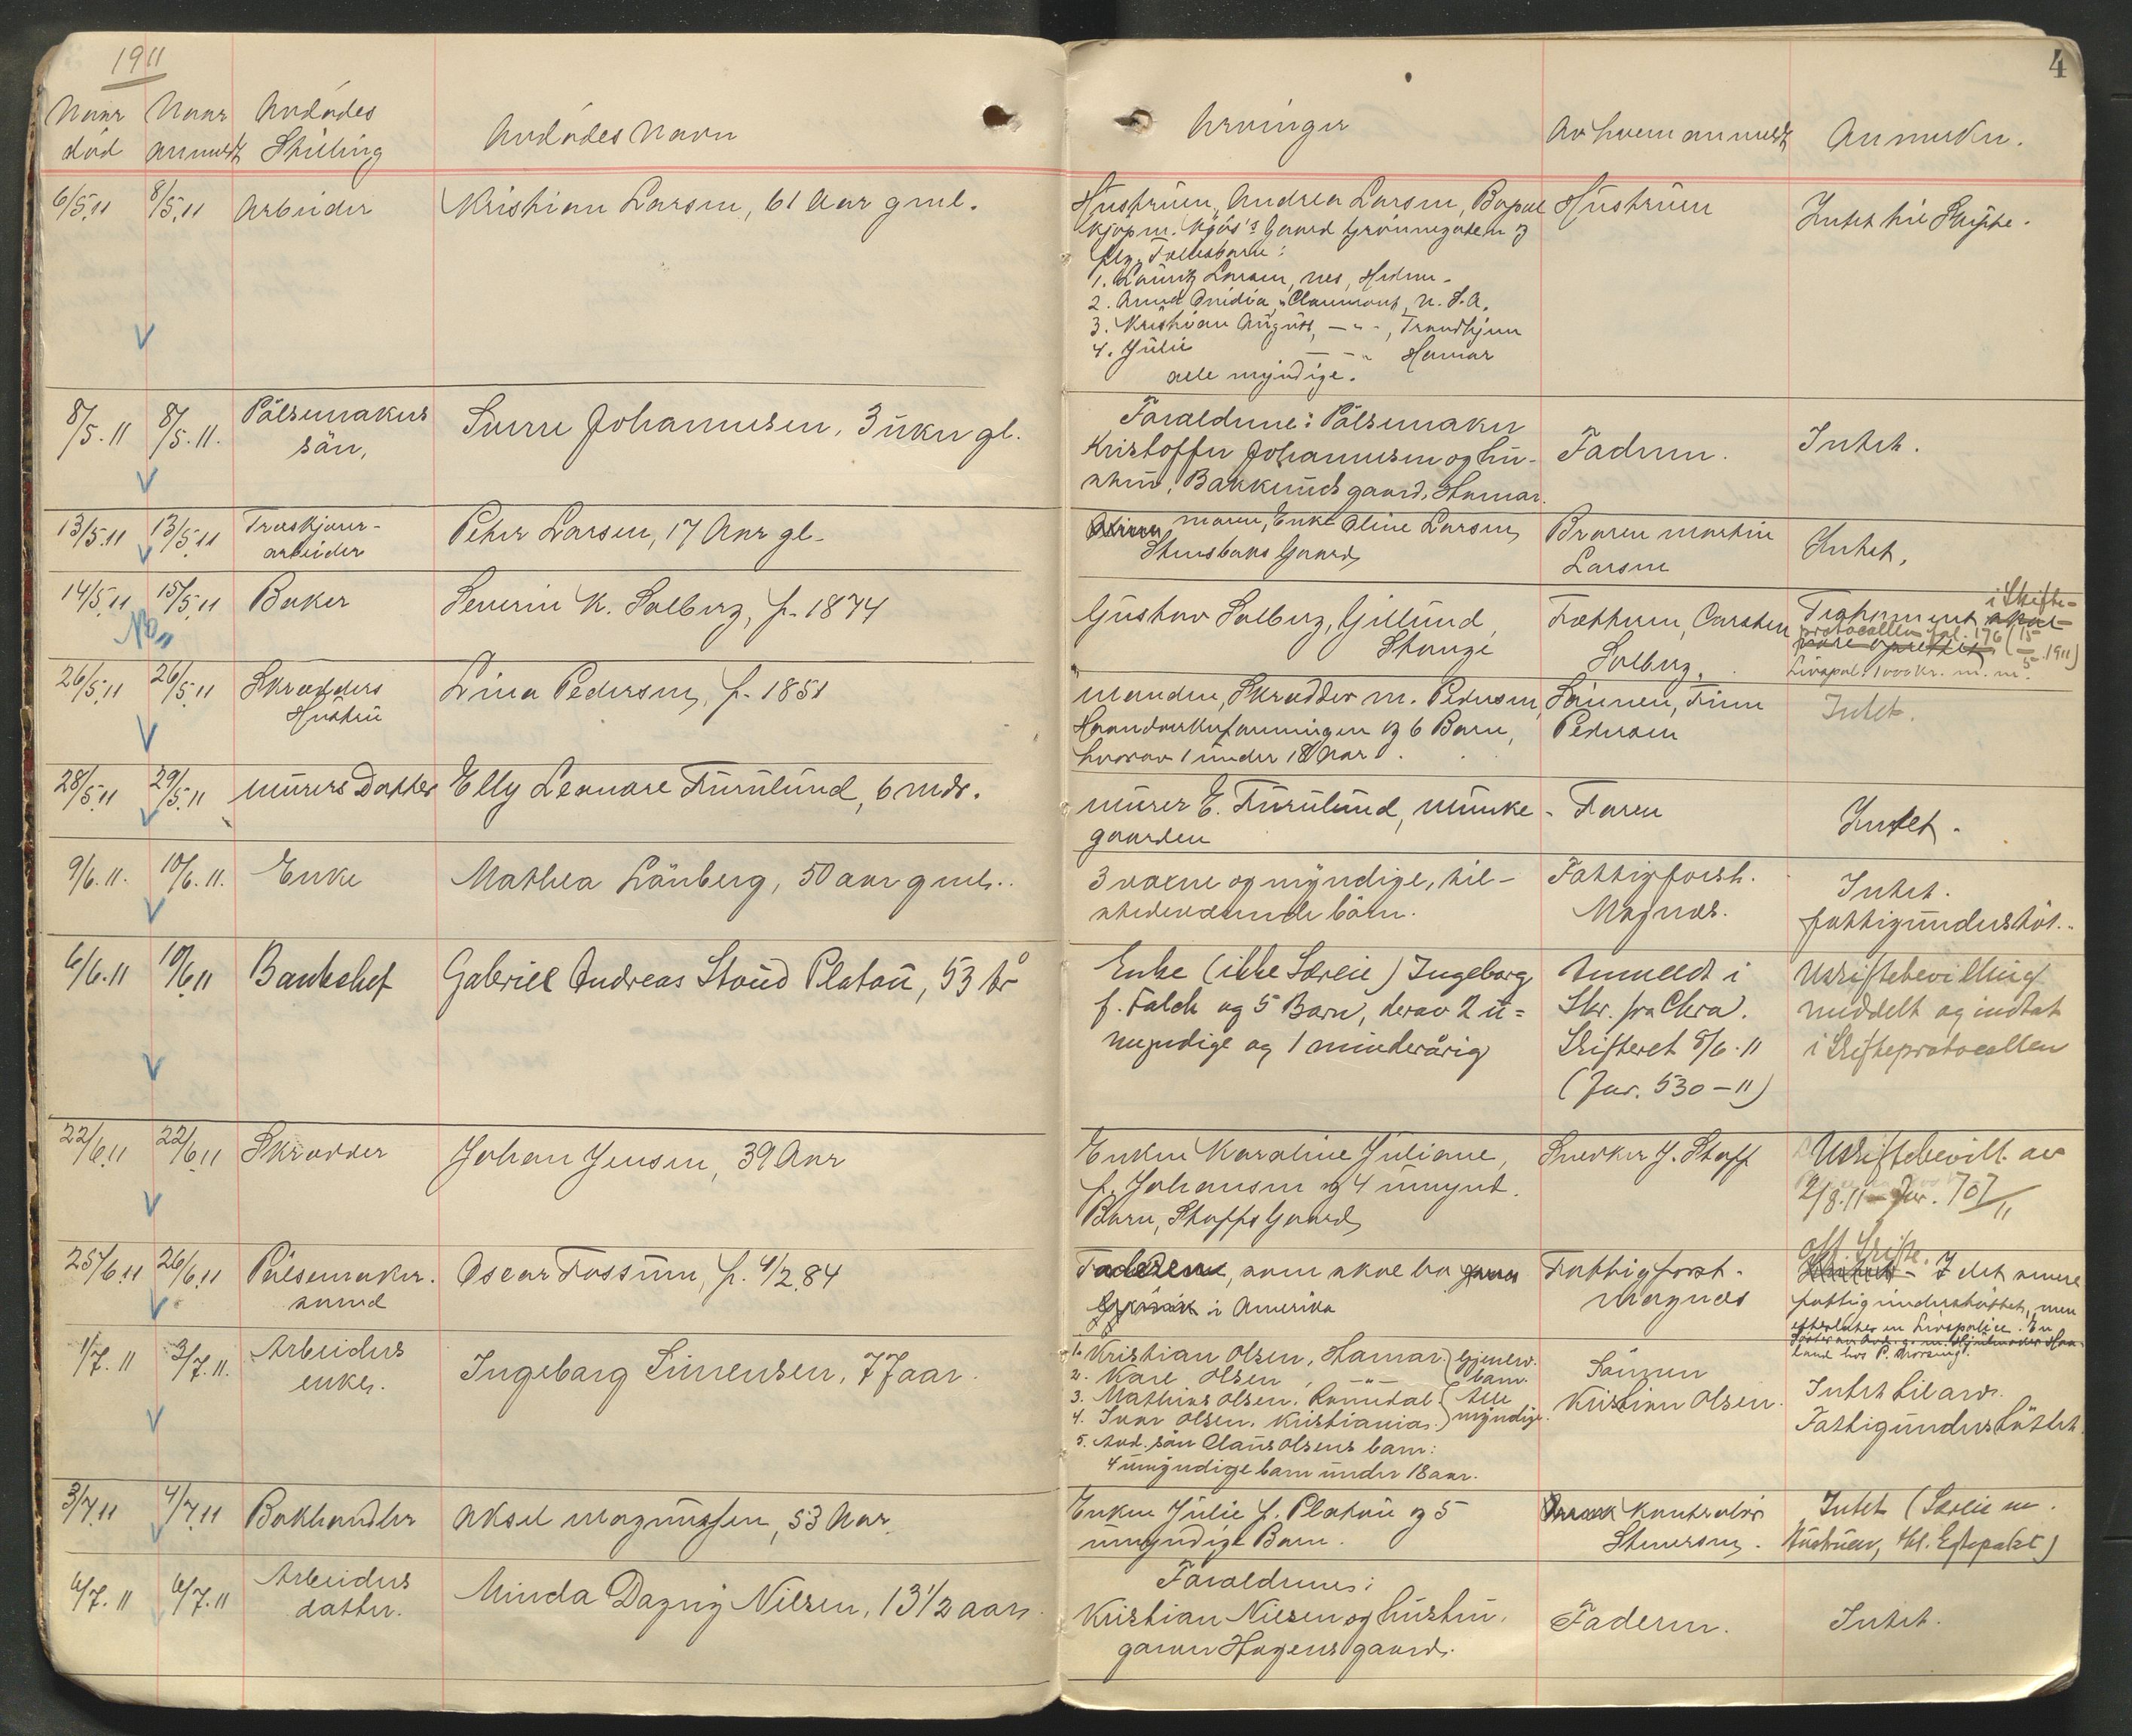 1911
4
Naar død
Naar anmeldt
Avdødes Stilling
Avdødes Navn
Arvinger
Av hvem anmeldt
Anmerkn.
6/5.11 8/5.11 Arbeider Kristian Larsen, 61 Aar gml.
Hustruen, Andrea Larsen, Bopæl
Kjøpm. Gaard Grønnegaten og
flg. Fællesbarn:
1. Lauritz Larsen, Nes, Hedm.
2. Anna Claumont, U.S.A.
3. Kristian August, — " — , Trondhjem
4. Julie — " — Hamar
alle myndige.
Hustruen
Intet til Skifte.
8/5.11 8/5.11. Pølsemakers
søn,
Sverre Johannesen, 3 uker gl.
Forældrene: Pølsemaker
Kristoffer Johannesen og hu-
stru, Bakkerudgaard, Hamar.
Faderen.
Intet.
13/5.11 13/5.11 Træskjærer-
arbeider
Peter Larsen, 17 Aar gl.
Moren, Enke Oline Larsen,
Stensbaks Gaard
Broren Martin
Larsen
Intet.
14/5.11 15/5.11 Baker Severin K. Solberg, f. 1874
NB.
Gustav Solberg, Gillund,
Stange
Fætteren, Carsten
Solberg.
Testament i Skifte-
protocollen fol. 176 (15/5 1911)
Livspol. 1000 kr. m. m.
26/5.11 26/5.11 Skrædders
Hustru
Lina Pedersen, f. 1851
Manden, Skrædder M. Pedersen,
Haandverkerforeningen og 6 Barn,
hvorav 1 under 18 Aar.
Sønnen, Finn
Pedersen
Intet.
28/5.11 29/5.11 Murers Datter Elly Leonore Furulund, 6 mdr.
Murer E. Furulund, Munke-
gaarden
Faren
Intet.
9/6.11. 10/6.11. Enke Mathea Lönberg, 50 aar gml.
3 voxne og myndige, til-
stedeværende börn.
Fattigforst.
Magnæs.
Intet.
fattigunderstöt.
6/6.11 10/6.11 Bankchef Gabriel Andreas Stoud Platou, 53 år
Enke (ikke Særeie) Ingeborg
f. Falch og 5 Barn, derav 2 u=
myndige og 1 minderårig
Anmeldt i
Skr. fra Chra.
Skifteret 8/6.11
(Jur. 530-11)
Uskiftebevilling
meddelt og indtat
i Skifteprotocollen
22/6.11 22/6.11 Skrædder Johan Jensen, 39 Aar
Enken Karoline Juliane,
f. Johansen og 4 umynd.
Barn, Stoffs Gaard
Snedker J. Stoff
Uskiftebevill. av
2/8.11 - Jur. 707/11
25/6.11 26/6.11 Pølsemaker.
svend
Oscar Fossum, f. 4/2.84
Faderen, som skal bo
i Amerika
Fattigforst.
Magnæs
off. Skifte.
I det senere
fattigunderstøttet, men
efterlater en Livspolice.
1/7.11 3/7.11. Arbeiders
enke.
Ingeborg Simensen, 77 aar.
1. Kristian Olsen, Hamar. } Gjenlev.
2. Karl Olsen, — " — barn.
3. Mathias Olsen, Romedal. } Alle
4. Ivar Olsen, Kristiania. } myndige.
5. Avd. sön Claus Olsens barn:
4 umyndige barn under 18 aar.
Sönnen
Kristian Olsen.
Intet til arv.
Fattigunderstöttet.
3/7.11 4/7.11 Bokhandler Aksel Magnussen, 53 Aar.
Enken Julie f. Platou og 5
umyndige Barn.
Kontrolør
Stenersen.
Intet (Særeie m.
Hustruen, tkl. Egtepakt)
6/7.11 6/7.11 Arbeiders
datter.
Minda Dagny Nilsen, 13 1/2 aar.
Forældrene:
Kristian Nilsen og hustru,
garver Hagens gaard.
Faderen.
Intet.